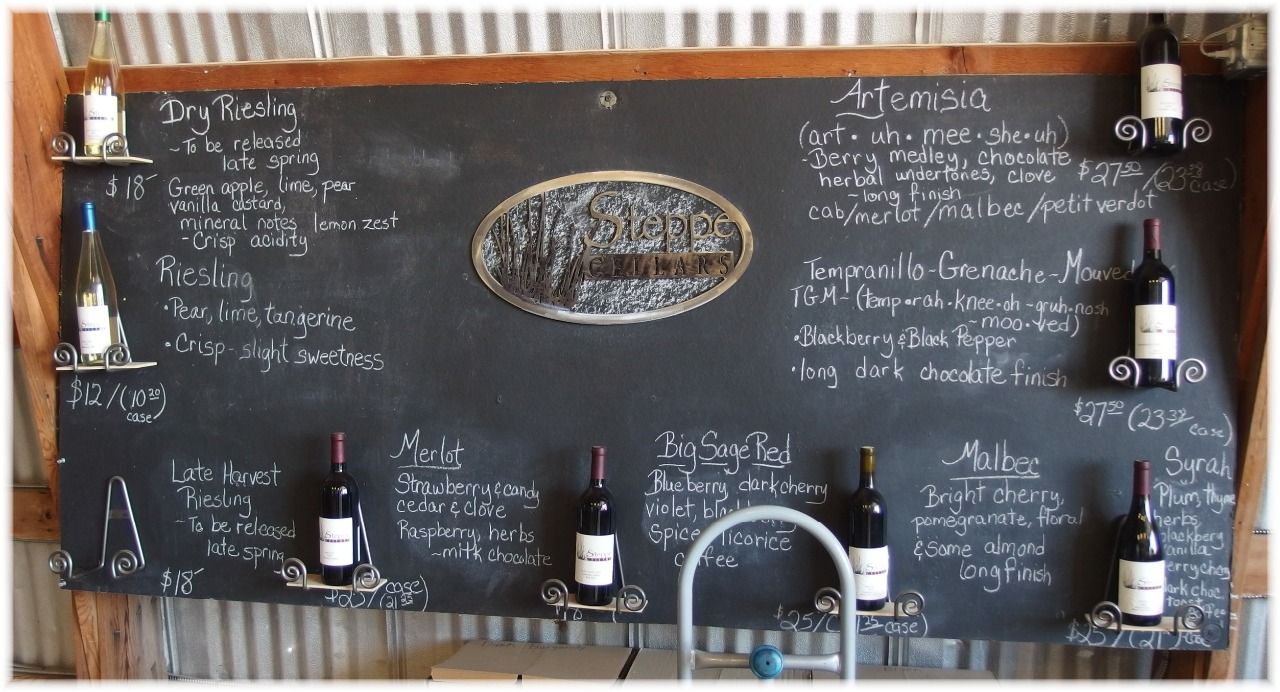 Dry Riesling
~To be released
late spring
$18
Green apple, lime, pear
vanilla custard,
mineral notes lemon zest
- Crisp acidity
Riesling
•Pear, lime, tangerine
•Crisp-slight sweetness
$12/(10 20
case)
Late Harvest
Riesling
~To be released
late spring
$18
Steppe
CELLARS
Artemisia
(art • uh • mee • she • uh)
-Berry medley, chocolate
herbal undertones, clove
~long finish
$27 50 /(23 38
case)
cab/merlot/malbec/petit verdot
Tempranillo-Grenache-Mouved
TGM~(temp•rah•knee•oh~gruh•nosh
~moo•ved)
•Blackberry & Black Pepper
•long dark chocolate finish
$27 50 (23 38
case)
Merlot
Strawberry & candy
cedar & clove
Raspberry, herbs
~milk chocolate
case)
Big Sage Red
Blueberry, dark cherry
violet,
Spice licorice
coffee
$25/ case)
Malbec
Bright cherry,
pomegranate, floral
& some almond
long finish
$25/(21
Syrah
Plum, thyme
herbs,
Steppe
Steppe